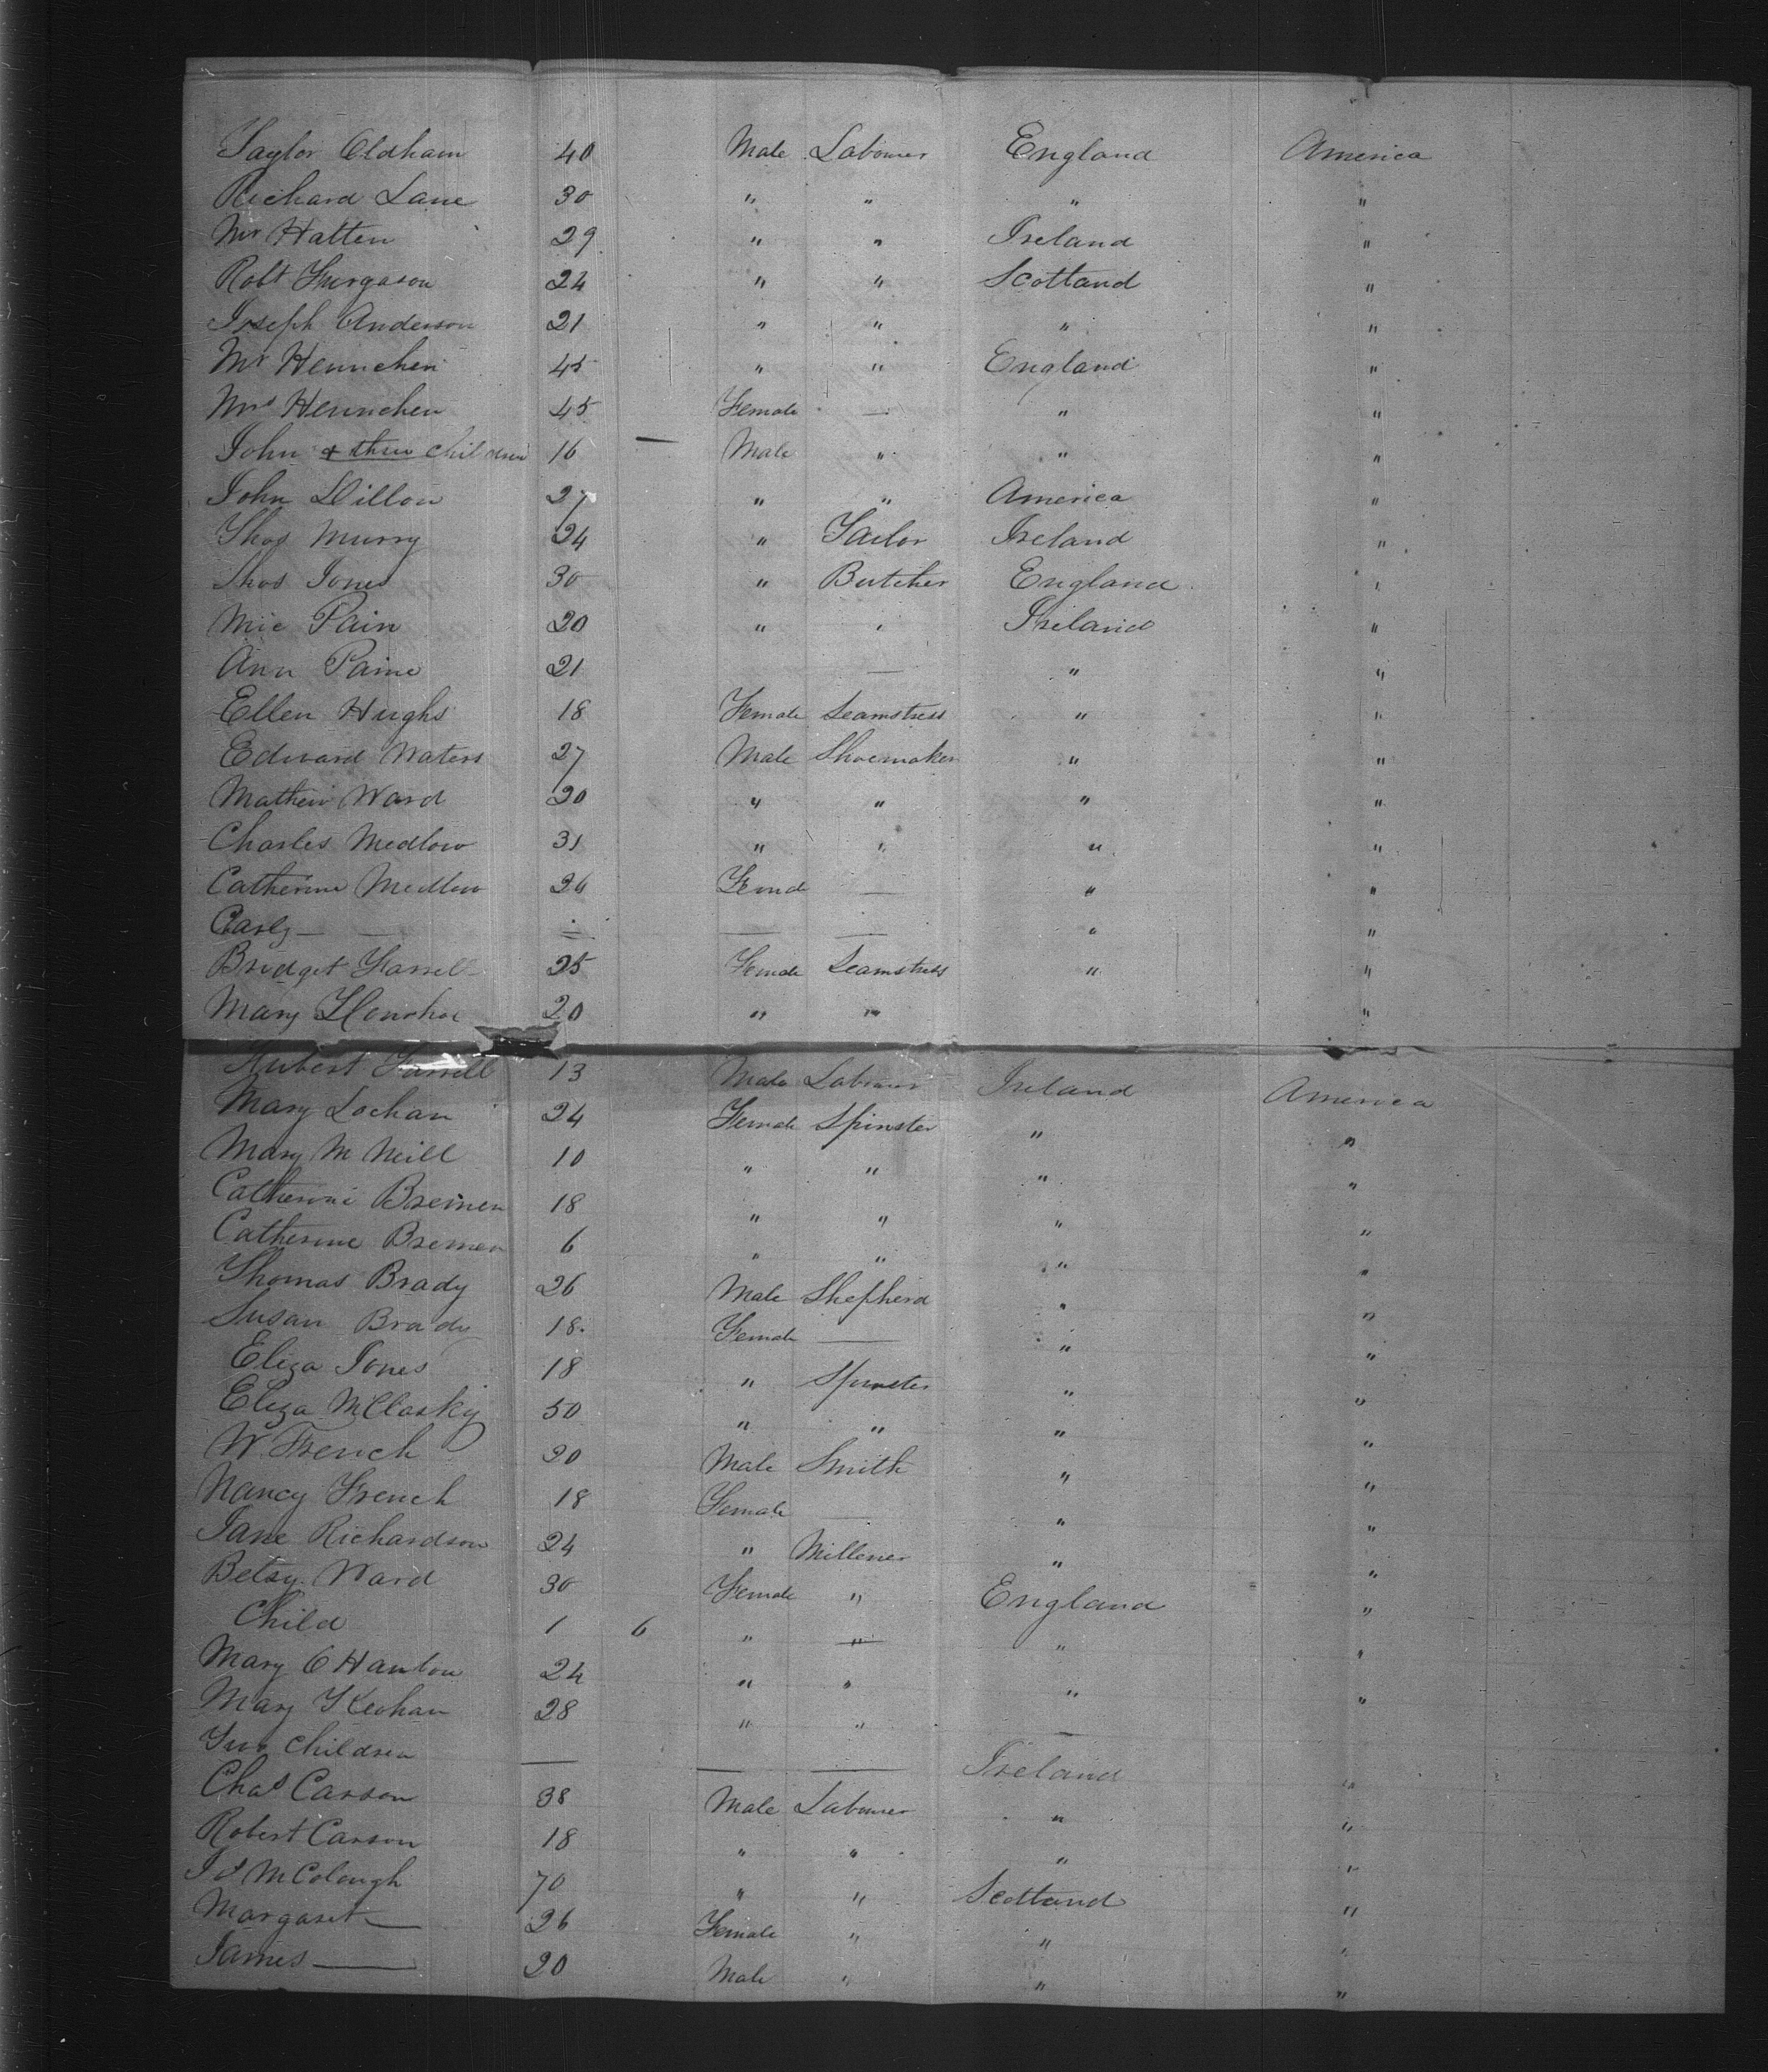 Taylor Oldham 40 Male Labourer England America
Richard Lane 30 " " " "
Mr Hatten 29 " " Ireland "
Robt Furgason 24 " " Scotland "
Joseph Anderson 21 " " " "
Mr Hennchen 45 " " England "
Mrs Hennchen 45 Female — " "
John & three children 16 — Male " " "
John Dillon 27 " " America "
Thos Murry 24 " Tailor Ireland "
Thos Jones 30 " Butcher England "
Mic Pain 20 " " Ireland "
Ann Paine 21 — " "
Ellen Hughs 18 Female Seamstress " "
Edward Waters 27 Male Shoemaker " "
Mathew Ward 20 " " " "
Charles Medlow 31 " " " "
Catherine Medlow 26 Femal — " "
— — — " "
Bridget Farrell 25 Female Seamstress " "
Mary 20 " " "
Hubert Farrell 13 Male Labourer Ireland America
Mary Lochan 24 Female Spinster " "
Mary M Neill 10 " " " "
Catherine Breinen 18 " " " "
Catherine Bremen 6 " " " "
Thomas Brady 26 Male Shepherd " "
Susan Brady 18 Female — " "
Eliza Jones 18 " Spinster " "
Eliza McClosky 50 " " " "
W. French 20 Male Smith " "
Nancy French 18 Female — " "
Jane Richardson 24 " Millener " "
Betsy Ward 30 Female " England "
Child 1 6 " " " "
Mary O Hanlon 24 " " " "
Mary Keohan 28 " " —
Two Children — — — Ireland "
Chas Carson 38 Male Labourer " "
Robert Carson 18 " " " "
Js McColough 70 " " Scotland "
Margaret — 26 Female " " "
James — 20 Male " " "